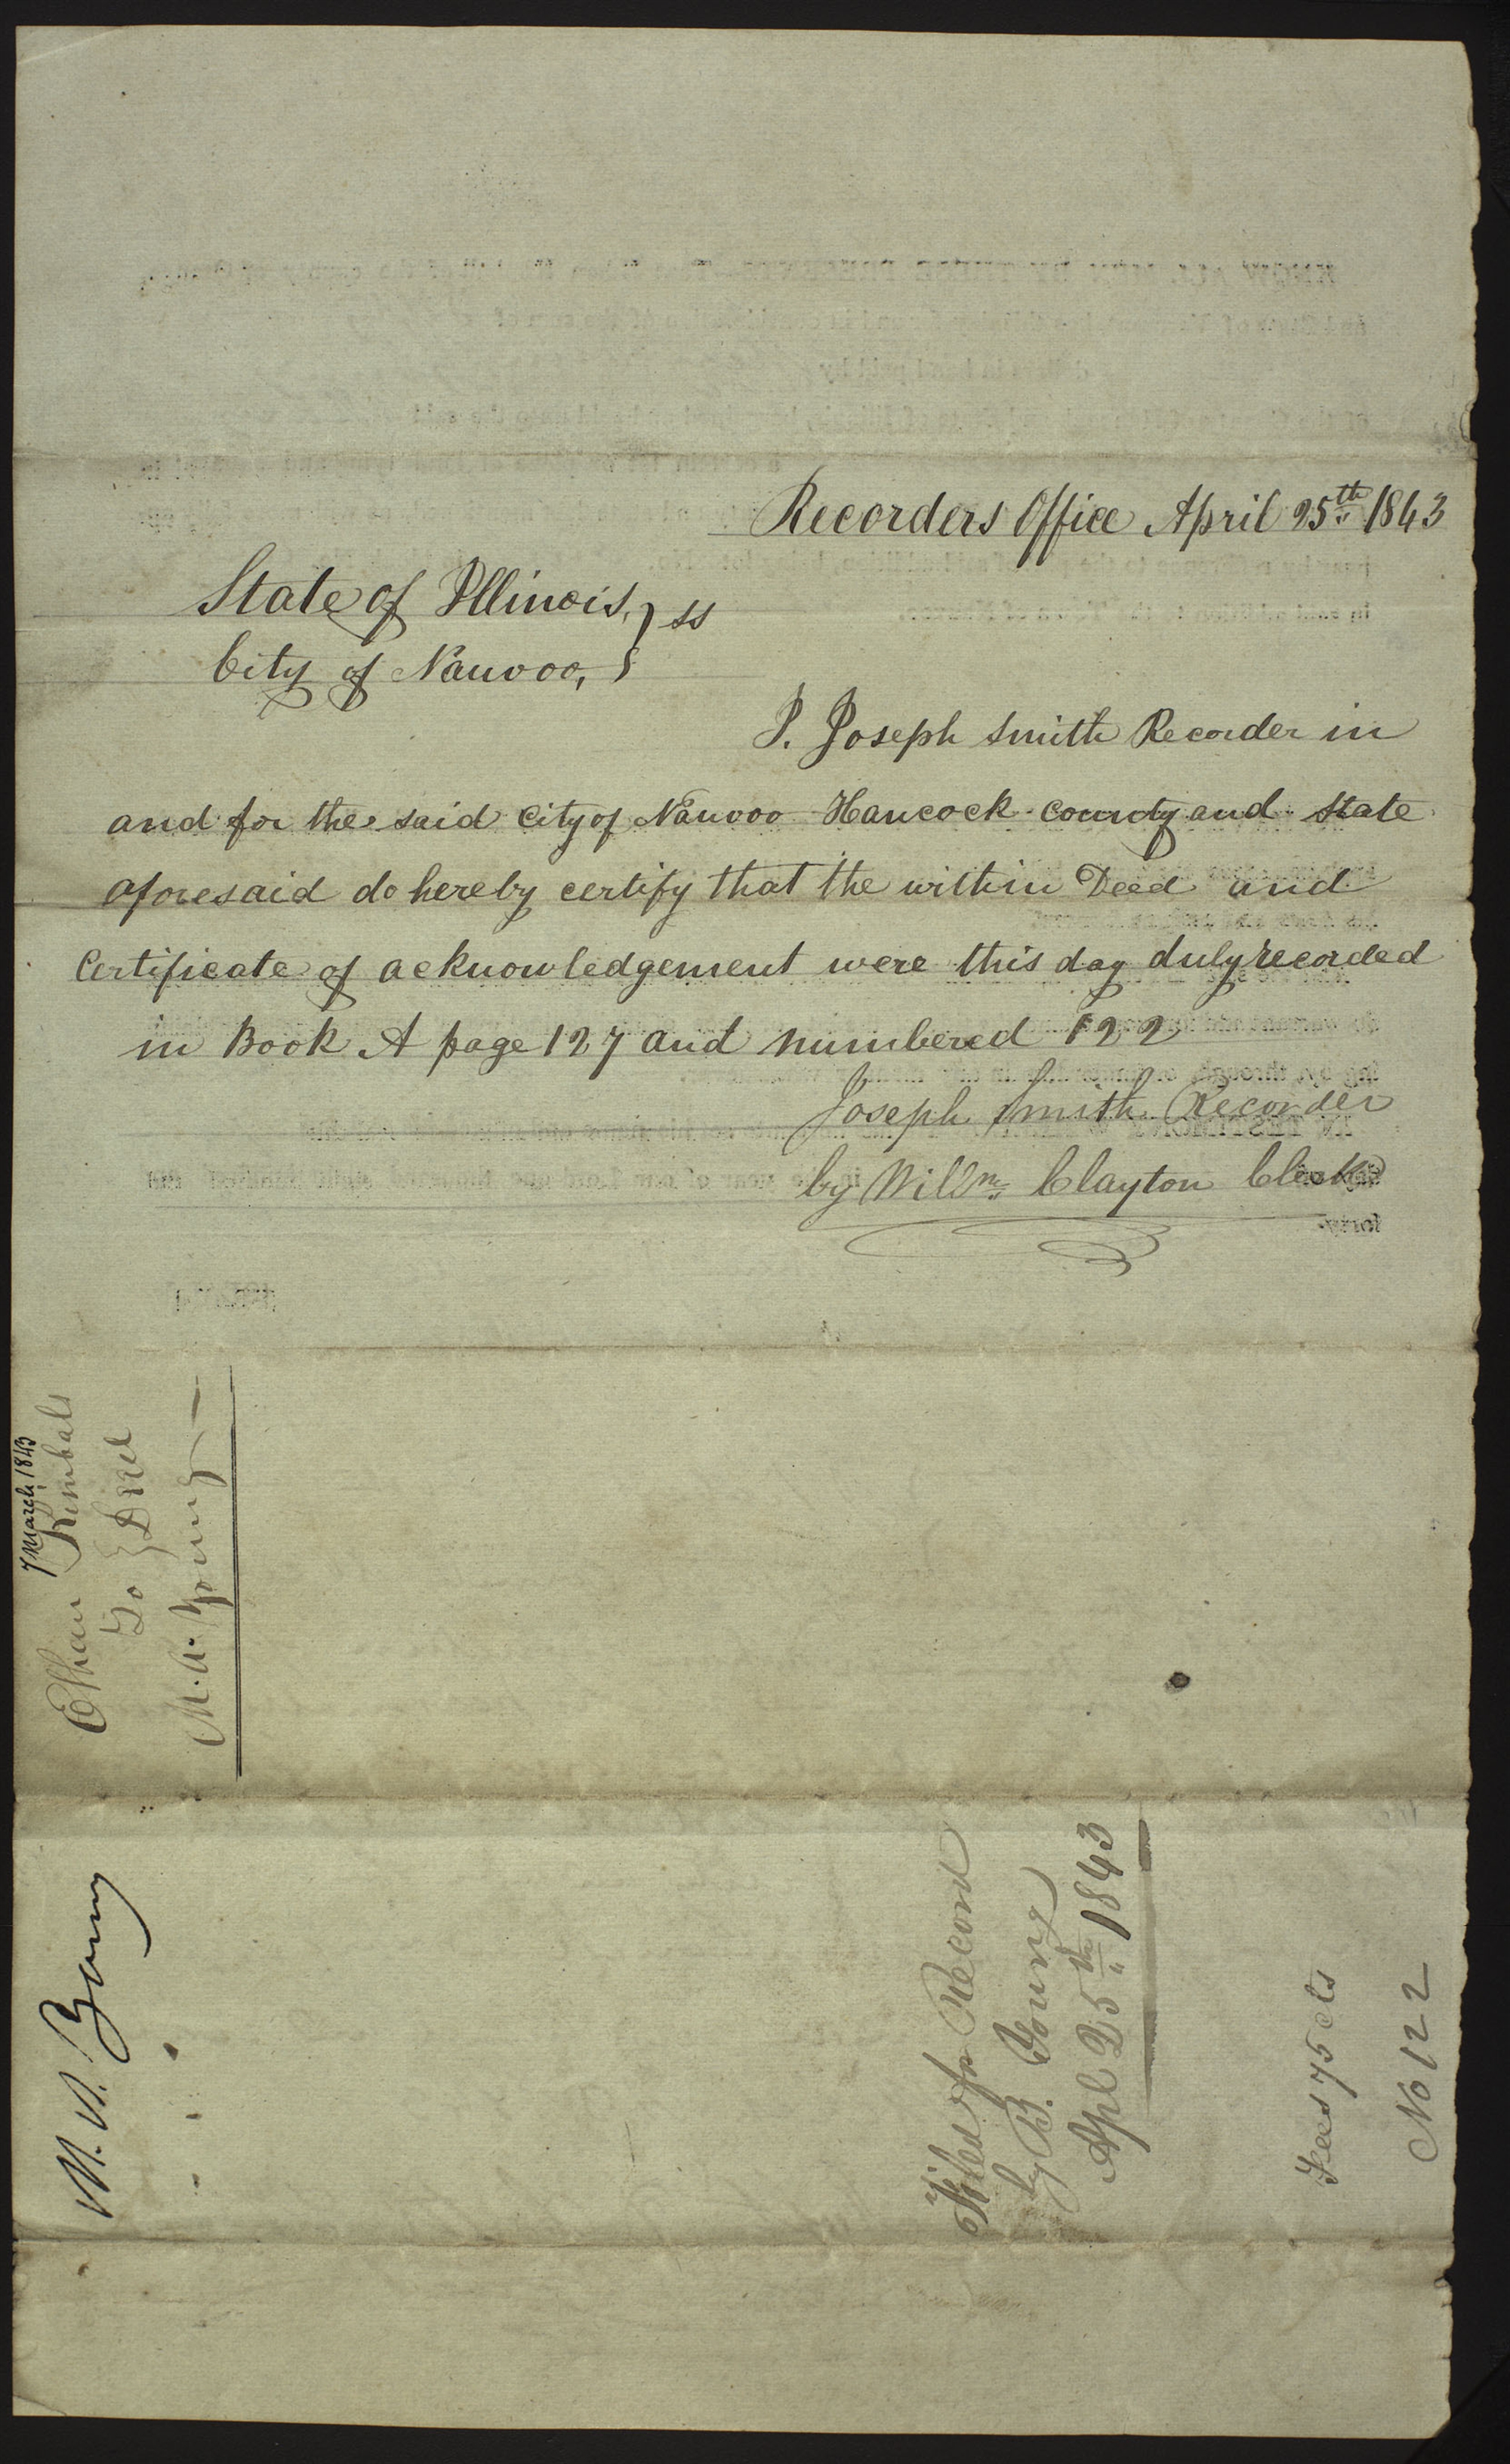 Recorders Office April 25th 1843
State of Illinois, } ss
City of Nauvoo, }
I. Joseph Smith Recorder in
and for the said City of Nauvoo Hancock county and State
aforesaid do hereby certify that the within Deed and
Certificate of acknowledgement were this day duly recorded
in Book A page 127 and numbered 122
Joseph Smith Recorder
by Willm Clayton Clerk
7 March 1843
Ethan Kimball
To } Deed
M. A. Young
M. A. Young
Filed for Record
by B. Young
Apl 25th 1843
Fees 75 cts
No 122